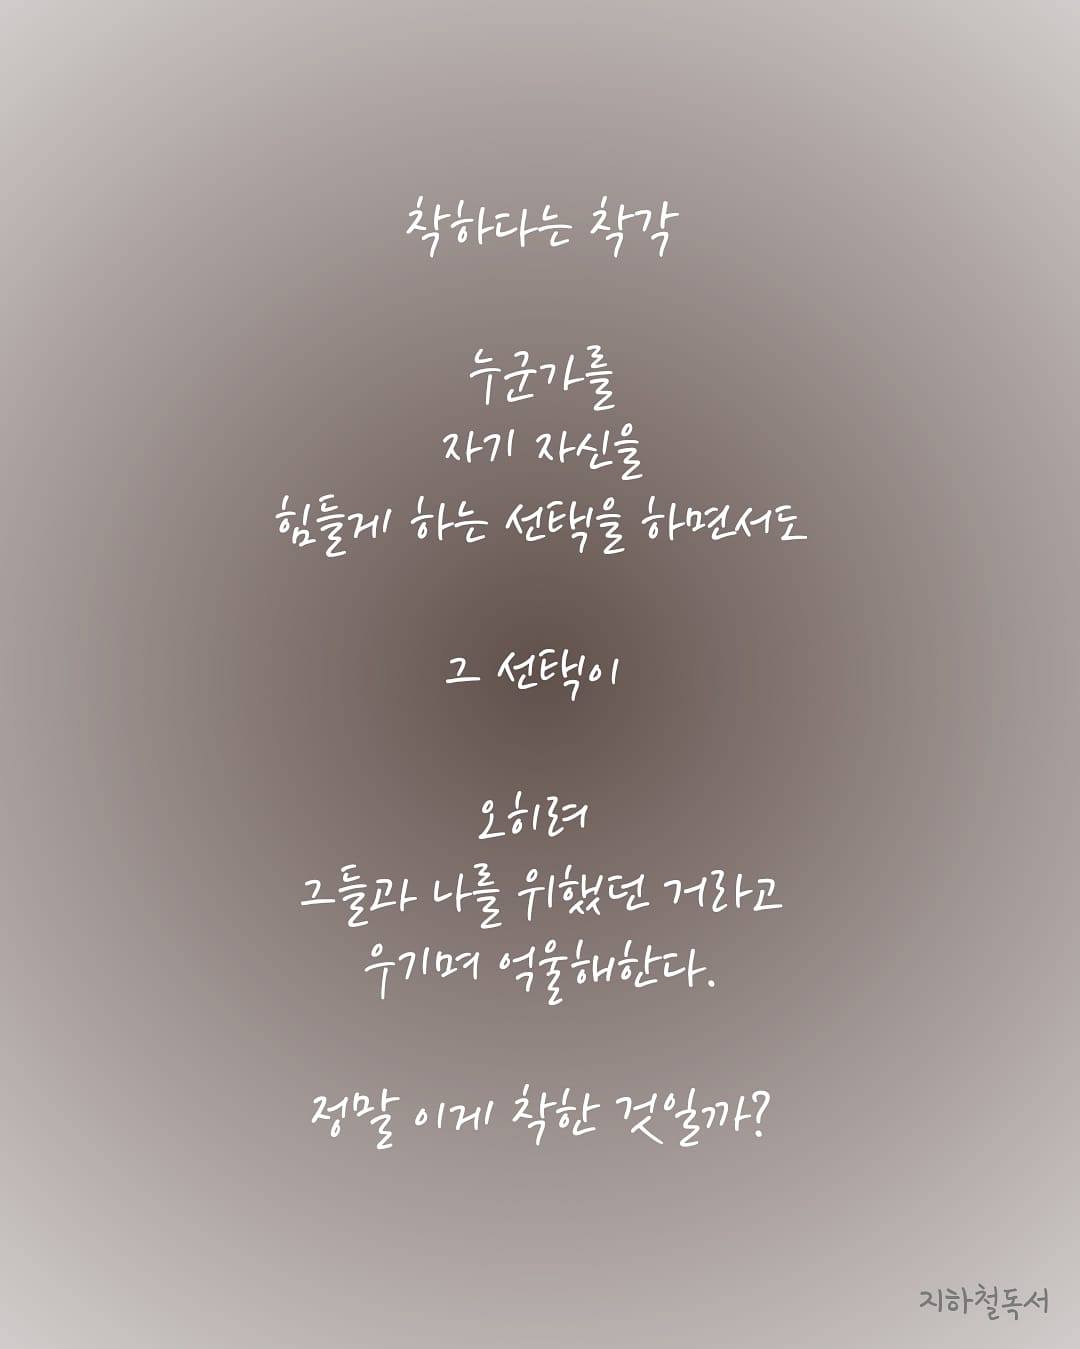 착하다는 착각
누군가를
자기 자신을
힘들게 하는 선택을 하면서도
그 선택이
오히려
그들과 나를 위했던 거라고
우기며 억울해한다.
정말 이게 착한 것일까?
지하철독서